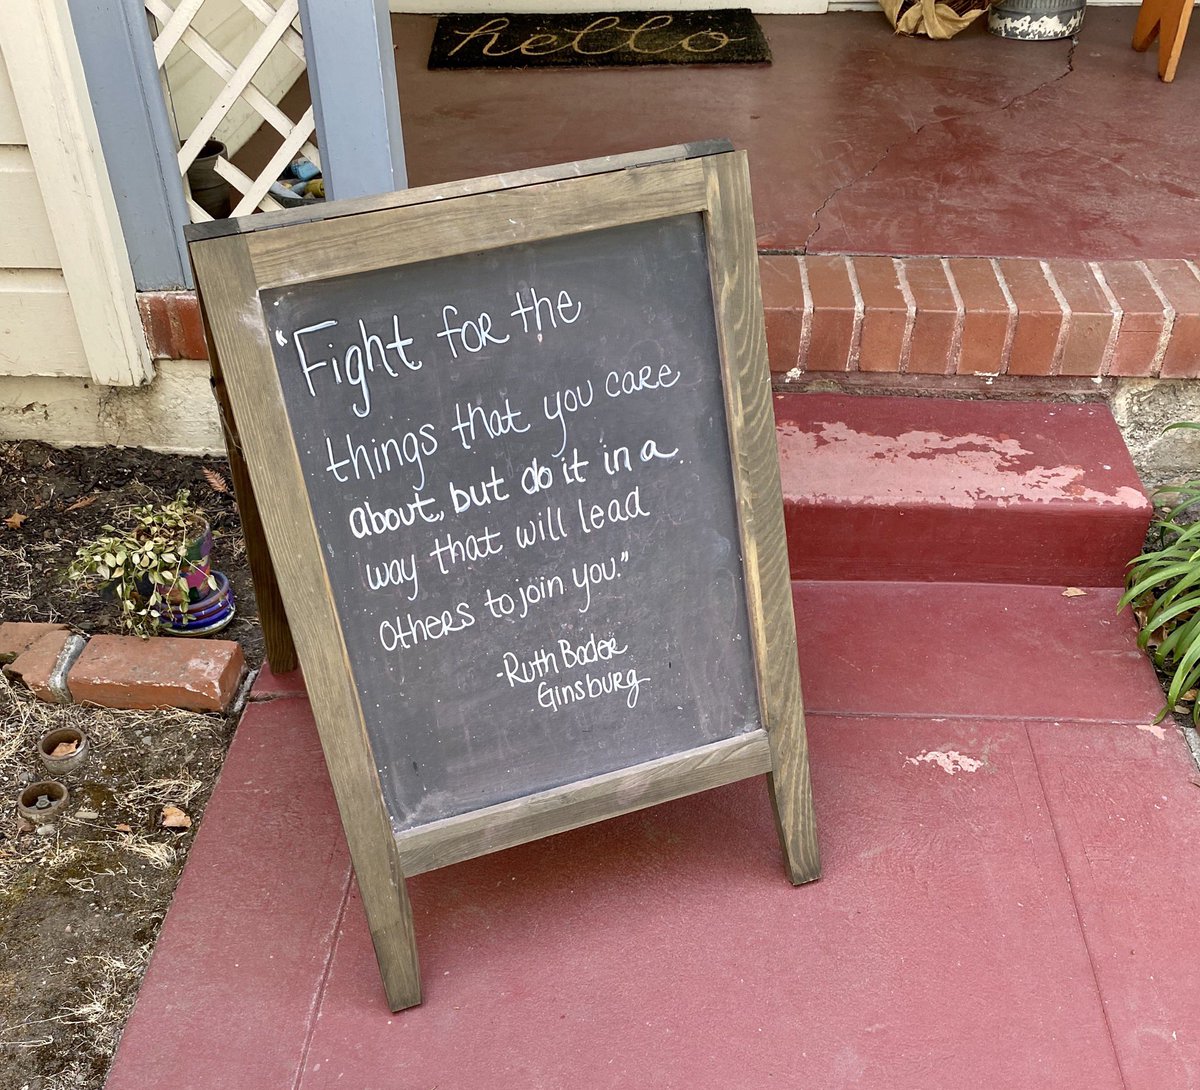 hello
"Fight for the
things that you care
about, but do it in a
way that will lead
others to join you."
-Ruth Bader
Ginsburg